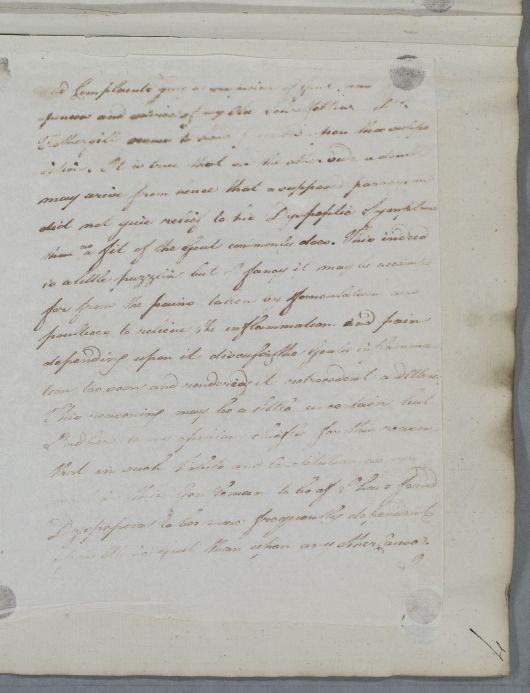 Complaints gave
and advice of my
Fothergill seems to have upon this suppo
sition. It is true that on the other side a doubt
may arise from hence that a supposed paroxysm
did not give relief to his Dyspeptic Symptoms
than as a fit of the Gout commonly does. This indeed
is a little puzzling but I fancy it may be accounted
for from the pains taken by fomentation and
poultices to relieve the inflammation and pain
depending upon it discussing the Gouty inflamma
tion too soon and rendered it retrocedent
This reasoning may be a little uncertain but
I adhere to my opinion chiefly for this reason
that in such habits and constitution as
this Gentleman to be of I have found
Dyspepsia to be more frequently dependent
gout than upon any other cause.